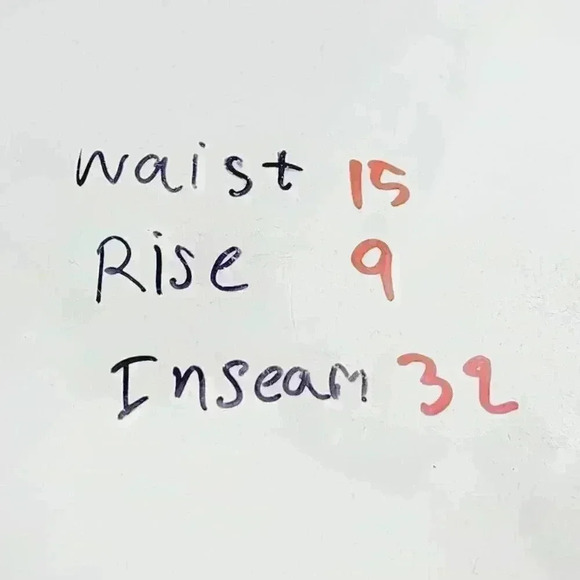 Waist 15
Rise 9
Inseam 32